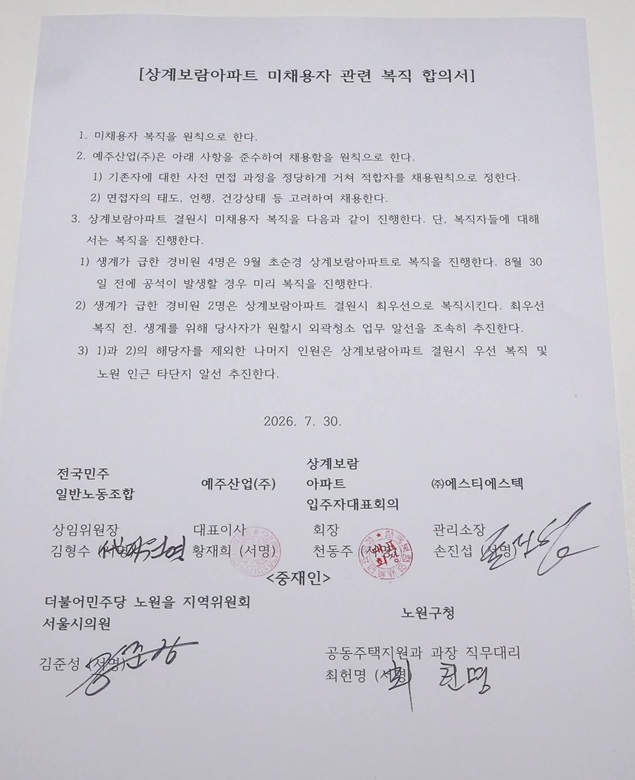 [상계보람아파트 미채용자 관련 복직 합의서]
1. 미채용자 복직을 원칙으로 한다.
2. 예주산업(주)은 아래 사항을 준수하여 채용함을 원칙으로 한다.
1) 기존자에 대한 사전 면접 과정을 정당하게 거쳐 적합자를 채용원칙으로 정한다.
2) 면접자의 태도, 언행, 건강상태 등 고려하여 채용한다.
3. 상계보람아파트 결원시 미채용자 복직을 다음과 같이 진행한다. 단, 복직자들에 대해
서는 복직을 진행한다.
1) 생계가 급한 경비원 4명은 9월 초순경 상계보람아파트로 복직을 진행한다. 8월 30
일 전에 공석이 발생할 경우 미리 복직을 진행한다.
2) 생계가 급한 경비원 2명은 상계보람아파트 결원시 최우선으로 복직시킨다. 최우선
복직 전, 생계를 위해 당사자가 원할시 외곽청소 업무 알선을 조속히 추진한다.
3) 1)과 2)의 해당자를 제외한 나머지 인원은 상계보람아파트 결원시 우선 복직 및
노원 인근 타단지 알선 추진한다.
2026. 7. 30.
전국민주
일반노동조합
예주산업(주)
상계보람
아파트
입주자대표회의
㈜에스티에스텍
상임위원장
김형수
대표이사
황재희 (서명)
회장
천동주 (서명)
관리소장
손진섭 (서명)
<중재인>
더불어민주당 노원을 지역위원회
서울시의원
김준성 (서명)
노원구청
공동주택지원과 과장 직무대리
최헌명 (서명)
최헌명